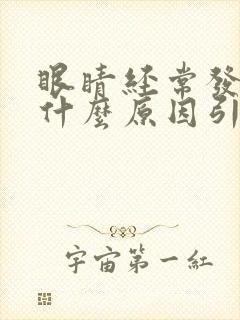 眼睛經常發
什麼原因引
宇宙第一紅